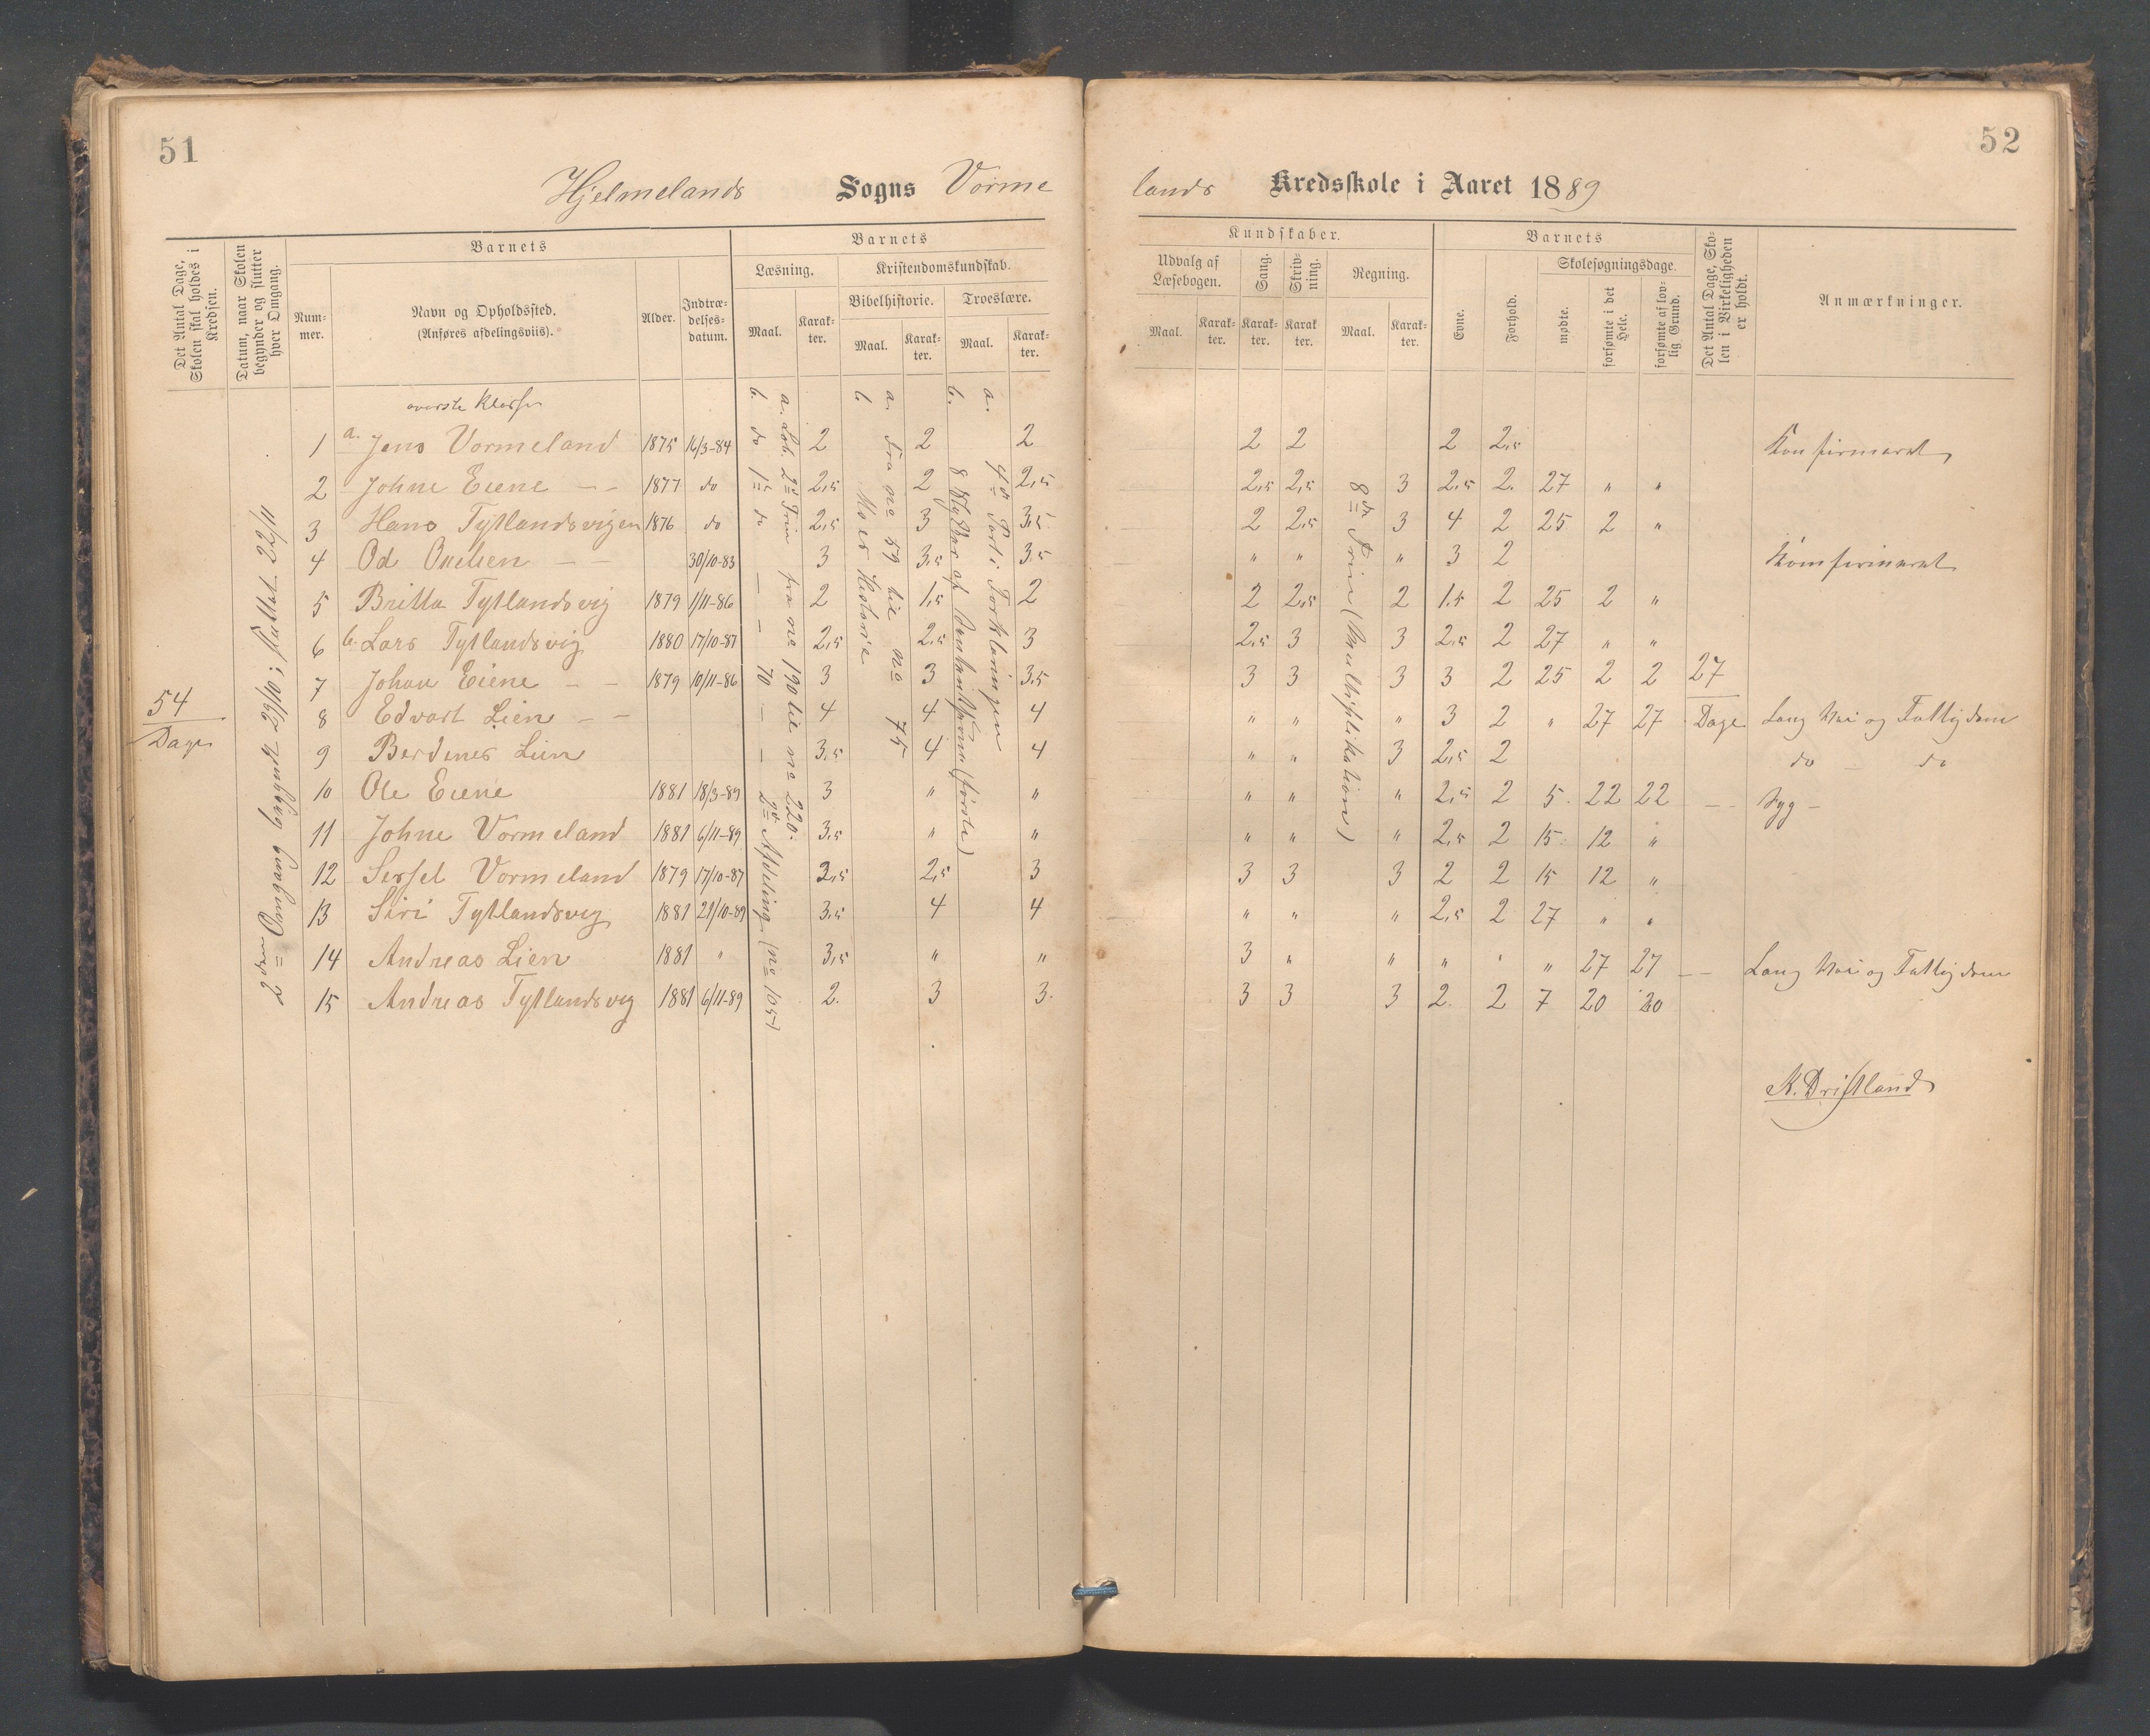 51
Hjelmelands Sogns Vorme
Det Antal Dage, Skolen skal holdes i Kredsen.
Datum, naar Skolen begynder og slutter hver Omgang.
Barnets
Num-mer.
Navn og Opholdssted.
(Anføres afdelingsviis).
Alder.
Indtræ-delses-datum.
Barnets
Læsning.
Kristendomskundskab.
Bibelhistorie. Troeslære.
Maal. Karak-ter. Maal. Karak-ter. Maal. Karak-ter.
54
Dage
2den Omgang begyndt 29/10; sluttet 22/11
øverste Klasse
1 a. Jens Vormeland 1875 16/3-84 2 2 2
2 Johne Eiene — — 1877 do 2,5 2 2,5
3 Hans Tytlandsvigen 1876 do 2,5 3 3,5
4 Od — — 30/10-83 3 3,5 3,5
5 Britta Tytlandsvig 1879 1/11-86 2 1,5 2
6 b. Lars Tytlandsvig 1880 17/10-87 2,5 2,5 3
7 Johan Eiene — — 1879 10/11-86 3 3 3,5
8 Edvart Lien — — 4 4 4
9 Berdines Lien 3,5 4 4
10 Ole Eiene 1881 18/3-89 3 " "
11 Johne Vormeland 1881 6/11-89 3,5 " "
12 Sersel Vormeland 1879 17/10-87 2,5 2,5 3
13 Siri Tytlandsvig 1881 21/10-89 3,5 4 4
14 Andreas Lien 1881 " 3,5 " "
15 Andreas Tytlandsvig 1881 6/11-89 2. 3 3.
a. Læb. 2det Trin fra no 190 til no 220.
b. do 1ste do — — 70 — — 2det Afdeling (no 105)
a. Fra no 59 til no 75
b. Historie
a. 4de Part i Forklaringen
b. 8 Stykker af (første)
52
lands Kredsskole i Aaret 1889
Kundskaber.
Udvalg af Læsebogen.
Sang.
Skriv-ning.
Regning.
Maal. Karak-ter. Karak-ter. Karak-ter. Maal. Karak-ter.
Barnets
Evne.
Forhold.
Skolesøgningsdage.
mødte.
forsømte i det Hele.
forsømte af lov-lig Grund.
Det Antal Dage, Sko-len i Virkeligheden er holdt.
Anmærkninger.
8de Trin (Multiplikation)
2 2 2 2,5 Konfirmeret
2,5 2,5 3 2,5 2. 27 " "
2 2,5 3 4 2 25 2 "
" " " 3 2 Komfirmeret
2 2,5 2 1,5 2 25 2 "
2,5 3 3 2,5 2 27 " "
3 3 3 3 2 25 2 2 27
" " " 3 2 " 27 27 Dage Lang Vei og Fattigdom
" " 3 2,5 2 do — do
" " " 2,5 2 5. 22 22 — — Syg —
" " " 2,5 2 15 12 "
3 3 3 2 2 15 12 "
" " " 2,5 2 27 " "
3 " " " " " 27 27 — — Lang Vei og Fattigdom
3 3 3 2. 2 7 20 20
K. Driftland